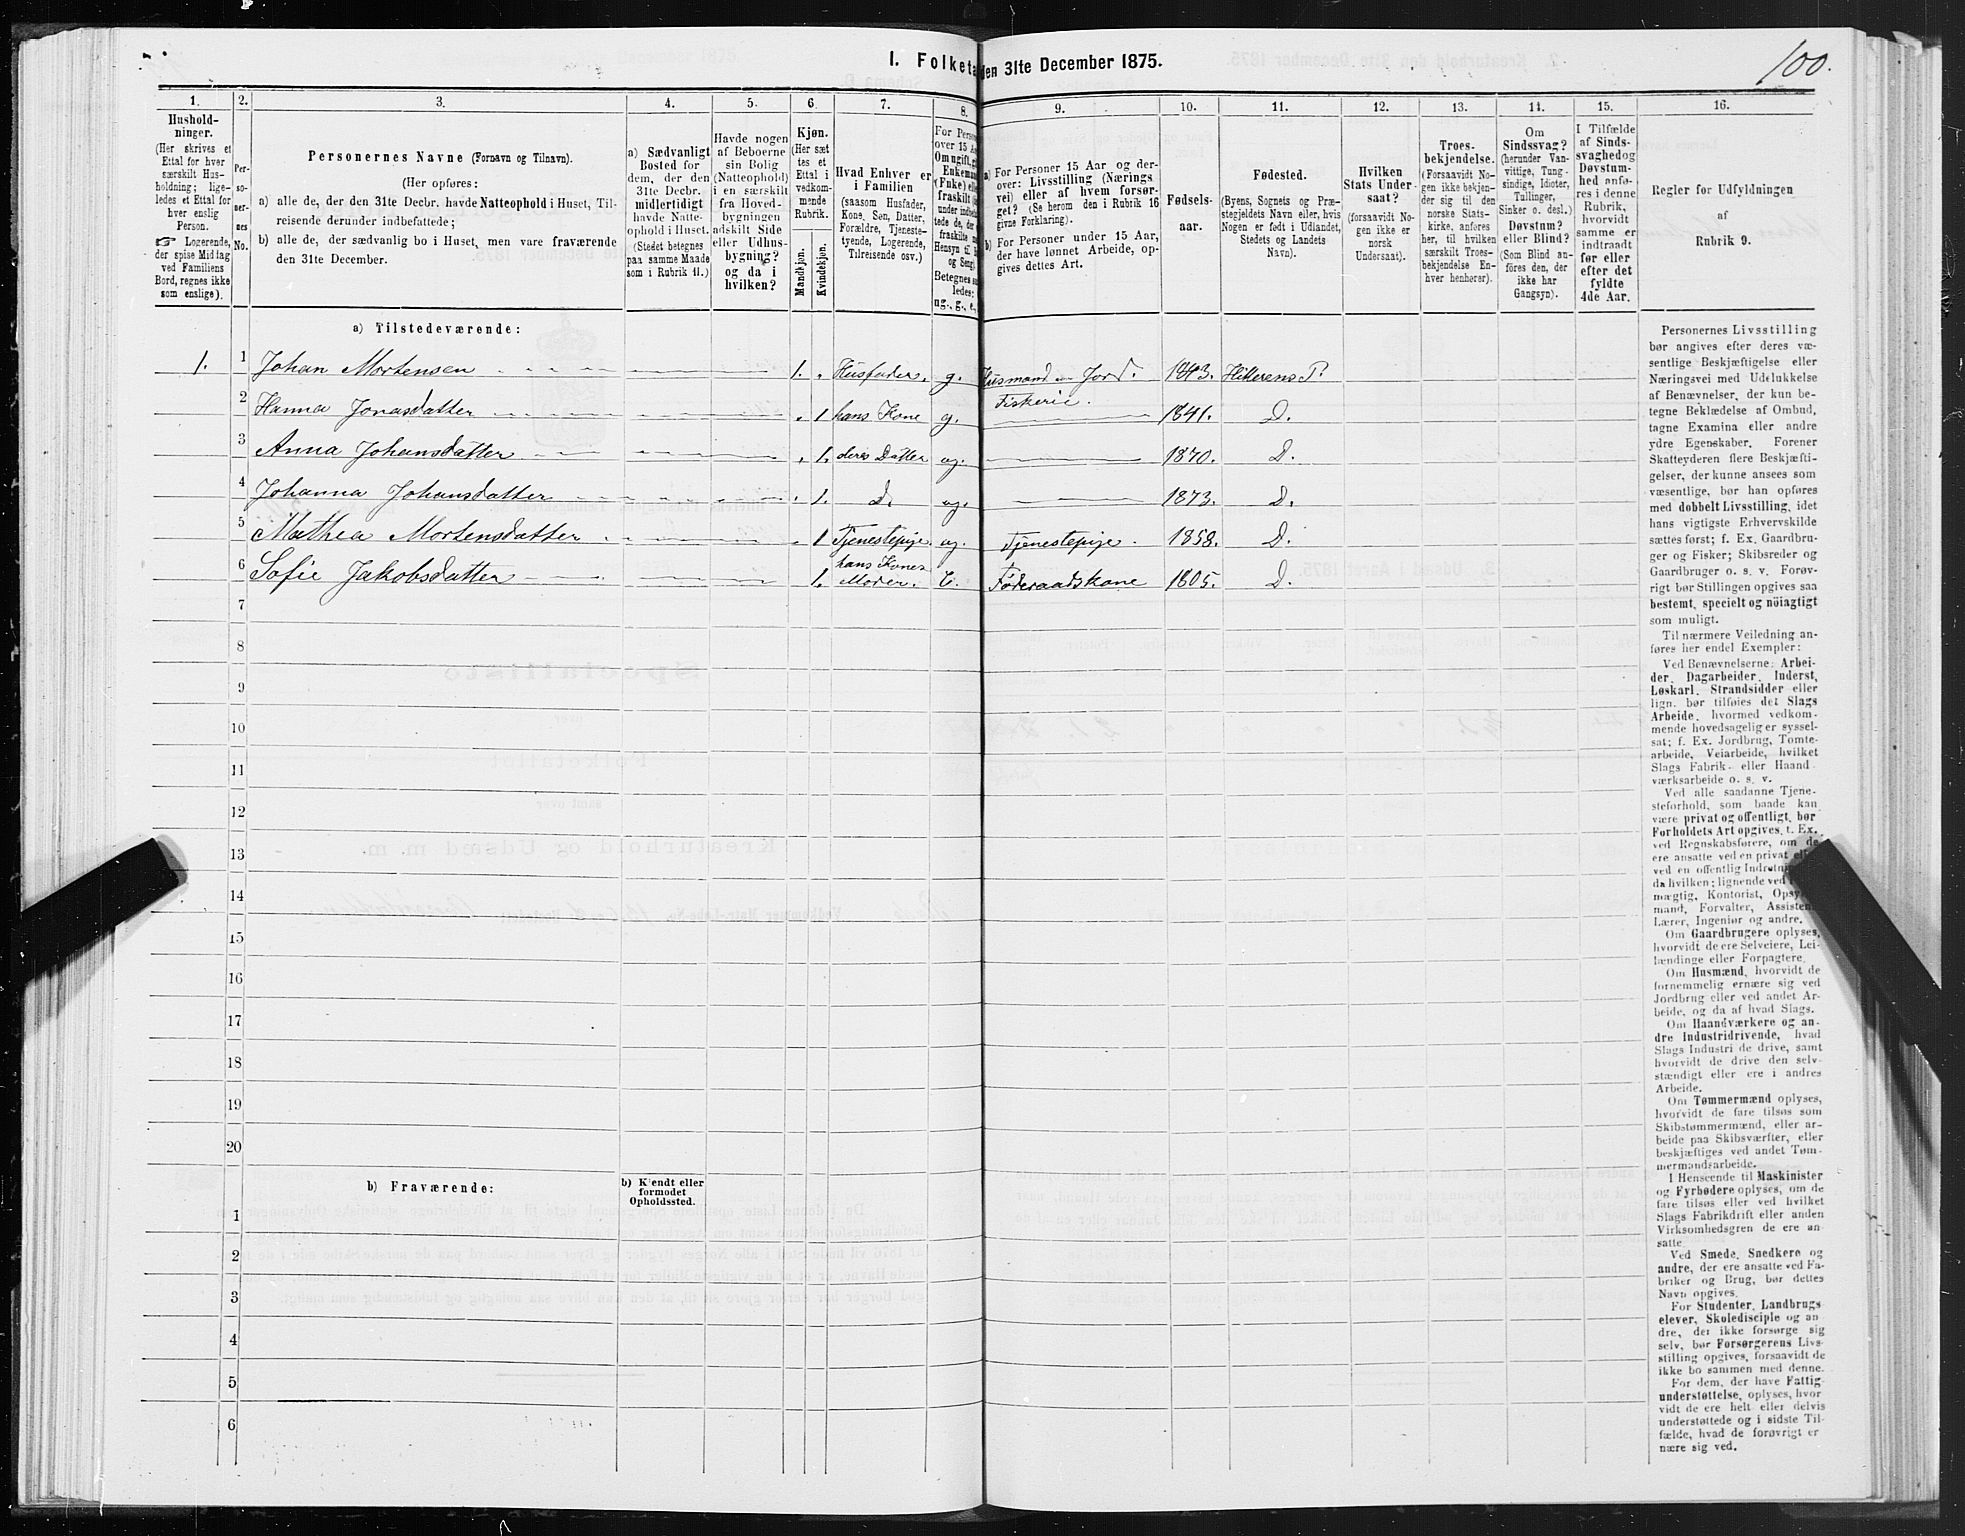 1. Folketa
den 31te December 1875.
100.
1.
2.
3.
4.
5.
6.
7.
8.
9.
10.
11.
12.
13.
14.
15.
16.
Hushold-
ninger.
(Her skrives et
Ettal for hver
særskilt Hus-
holdning; lige-
ledes et Ettal for
hver enslig
Person.
☞ Logerende,
der spise Middag
ved Familiens
Bord, regnes ikke
som enslige).
Per-
so-
ner-
nes
No.
Personernes Navne (Fornavn og Tilnavn).
(Her opføres:
a) alle de, der den 31te Decbr. havde Natteophold i Huset, Til-
reisende derunder indbefattede;
b) alle de, der sædvanlig bo i Huset, men vare fraværende
den 31te December.
a) Sædvanligt
Bosted for
dem, der den
31te Decbr.
midlertidigt
havde Natte-
ophold i Huset.
(Stedet betegnes
paa samme Maade
som i Rubrik 11.)
Havde nogen
af Beboerne
sin Bolig
(Natteophold)
i en særskilt
fra Hoved-
bygningen
adskilt Side
eller Udhus-
bygning?
og da i
hvilken?
Kjøn.
(Her sæt
tes et
Ettal i
vedkom-
mende
Rubrik.
Mandkjøn.
Kvindekjøn.
Hvad Enhver er
i Familien
(saasom Husfader,
Kone, Søn, Datter,
Forældre, Tjeneste-
tyende, Logerende,
Tilreisende osv.)
For Perso
over 15 A
Om ugift, g
Enkema
(Enke) ell
fraskilt
under indbe
tede de, der
fraskilte
Hensyn til
og Seng).
Betegnes sa
ledes:
ug., g., e.,
a) For Personer 15 Aar og der-
over: Livsstilling (Nærings
vei) eller af hvem forsør-
get? (Se herom den i Rubrik 16
givne Forklaring).
b) For Personer under 15 Aar,
der have lønnet Arbeide, op-
gives dettes Art.
Fødsels-
aar.
Fødested.
(Byens, Sognets og Præ-
stegjeldets Navn eller, hvis
Nogen er født i Udlandet,
Stedets og Landets
Navn).
Hvilken
Stats Under-
saat?
(forsaavidt No-
gen ikke er
norsk
Undersaat).
Troes-
bekjendelse.
(Forsaavidt No-
gen ikke bekjen-
der sig til den
norske Stats-
kirke, anføres
her, til hvilken
særskilt Troes-
bekjendelse En-
hver henhører).
Om
Sindssvag?
(herunder Van-
vittige, Tung-
sindige, Idioter,
Tullinger,
Sinker o. desl.)
Døvstum?
eller Blind?
(Som Blind an-
føres den, der
ikke har
Gangsyn).
I Tilfælde
af Sinds-
svaghed og
Døvstum-
hed anfø-
res i denne
Rubrik,
hvorvidt
samme er
indtraadt
før eller
efter det
fyldte
4de Aar.
Regler for Udfyldningen
af
Rubrik 9.
a) Tilstedeværende:
1. 1 Johan Mortensen 1. Husfader. g. Husmand Jord. Fiskerie. 1843. Hitterens P.
2 Hanna Jonasdatter 1 hans Kone g. 1841. D.
3 Anna Johansdatter 1. deres Datter ug. 1870. D.
4 Johanna Johansdatter 1. D. ug. 1873. D.
5 Mathea Mortensdatter 1 Tjenestepige ug. Tjenestepige. 1858. D.
6 Sofie Jakobsdatter 1. hans Kones Moder. E. Føderaadskone 1805. D.
7
8
9
10
11
12
13
14
15
16
17
18
19
20
b) Fraværende:
b) Kjendt eller
formodet
Opholdssted.
1
2
3
4
5
6
Personernes Livsstilling
bør angives efter deres væ-
sentlige Beskjæftigelse eller
Næringsvei med Udelukkelse
af Benævnelser, der kun be-
tegne Beklædelse af Ombud,
tagne Examina eller andre
ydre Egenskaber. Forener
Skatteyderen flere Beskjæfti-
gelser, der kunne ansees som
væsentlige, bør han opføres
med dobbelt Livsstilling, idet
hans vigtigste Erhvervskilde
sættes først; f. Ex. Gaardbru-
ger og Fisker; Skibsreder og
Gaardbruger o. s. v. Forøv-
rigt bør Stillingen opgives saa
bestemt, specielt og nöiagtigt
som muligt.
Til nærmere Veiledning an-
føres her endel Exempler:
Ved Benævnelserne: Arbei-
der, Dagarbeider, Inderst,
Løskarl, Strandsidder eller
lign. bør tilføies det Slags
Arbeide, hvormed vedkom-
mende hovedsagelig er syssel-
sat; f. Ex. Jordbrug, Tomte-
arbeide, Veiarbeide, hvilket
Slags Fabrik- eller Haand
værksarbeide o. s. v.
Ved alle saadanne Tjene-
steforhold, som baade kan
være privat og offentligt, bør
Forholdets Art opgives, t. Ex.
ved Regnskabsførere, om de
ere ansatte ved en privat el
ved en offentlig Indretni
da hvilken; lignende ved
mægtig, Kontorist, Opsy
mand, Forvalter, Assisten
Lærer, Ingeniør og andre.
Om Gaardbrugere oplyses,
hvorvidt de ere Selveiere, Lei-
lændinge eller Forpagtere.
Om Husmænd, hvorvidt de
fornemmelig ernære sig ved
Jordbrug eller ved andet Ar-
beide, og da af hvad Slags.
Om Haandværkere og an-
dre Industridrivende, hvad
Slags Industri de drive, samt
hvorvidt de drive den selv-
stændigt eller ere i andres
Arbeide.
Om Tømmermænd oplyses,
hvorvidt de fare tilsøs som
Skibstømmermænd, eller ar-
beide paa Skibsværfter, eller
beskjæftiges ved andet Tøm-
mermandsarbeide.
I Henseende til Maskinister
og Fyrbødere oplyses, om de
fare tilsøs eller ved hvilket
Slags Fabrikdrift eller anden
Virksomhedsgren de ere an-
satte.
Ved Smede, Snedkere og
andre, der ere ansatte ved Fa-
briker og Brug, bør dettes
Navn opgives.
For Studenter, Landbrugs
elever, Skoledisciple og an
dre, der ikke forsørge sig
selv, bør Forsørgerens Livs-
stilling opgives, forsaavidt de
ikke bo sammen med denne.
For dem, der have Fattig
understøttelse, oplyses, hvor
vidt de ere helt eller delvis
understøttede og i sidste Til-
fælde, hvad de forøvrigt er
nære sig ved.